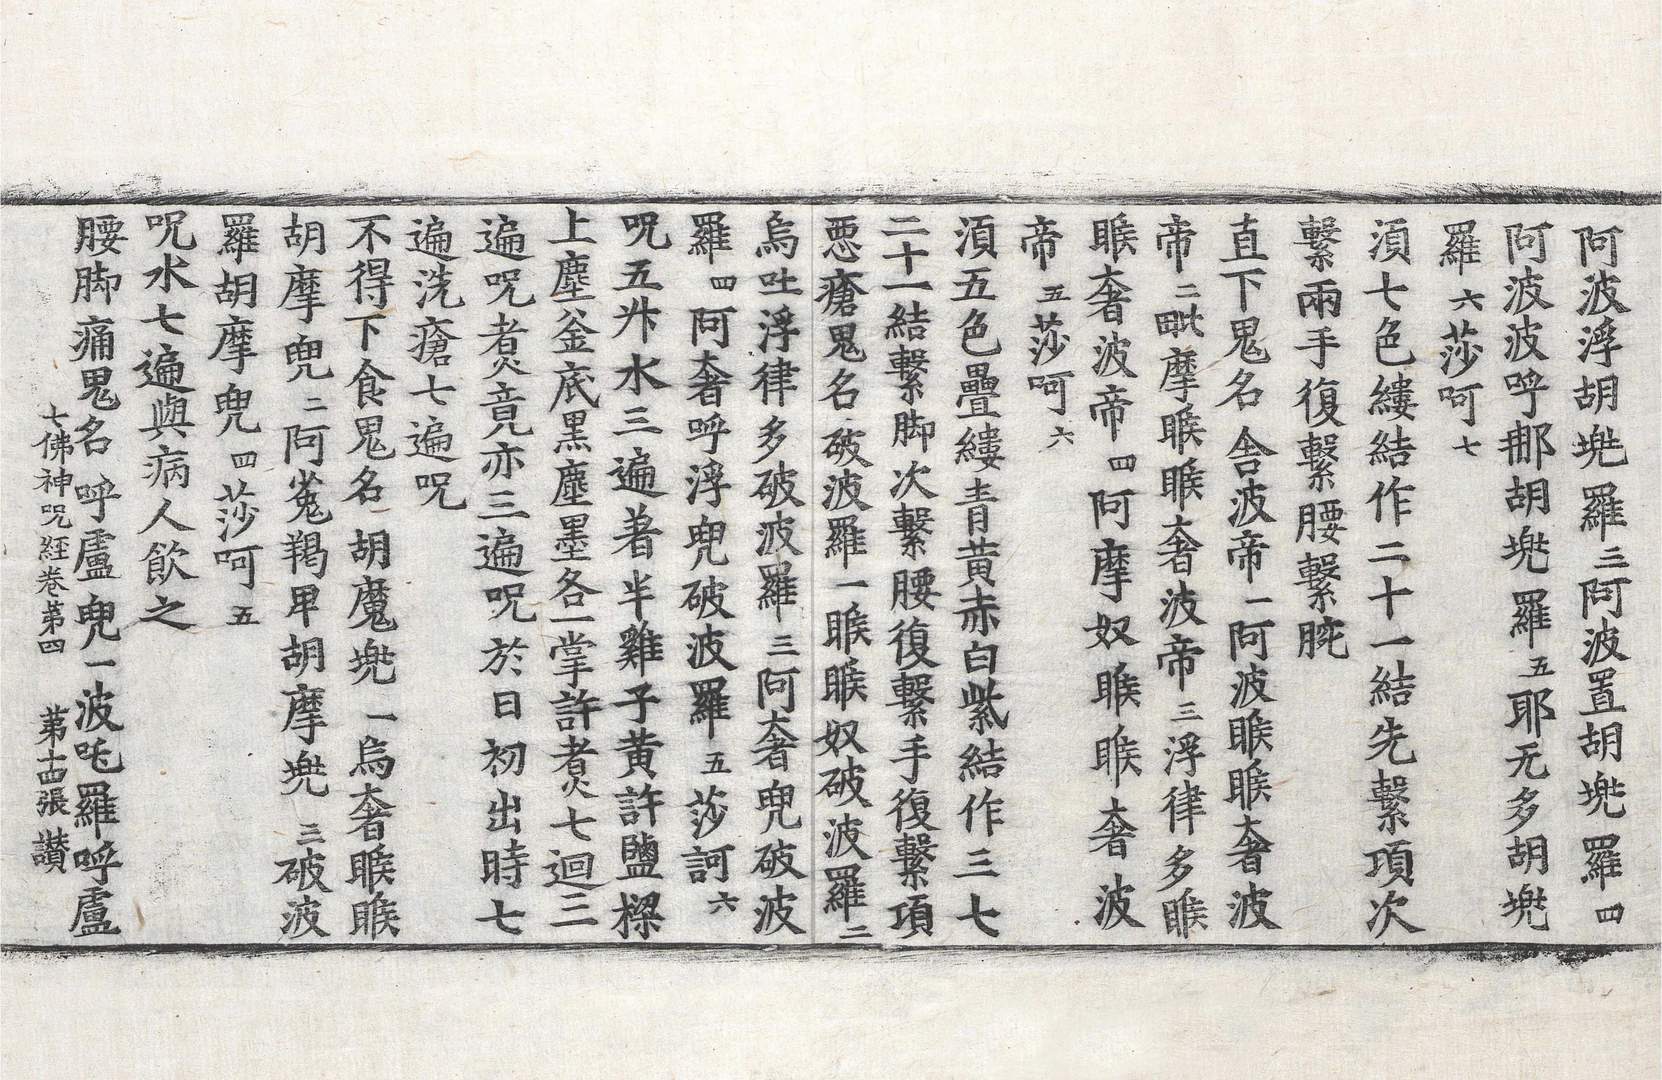 阿波浮胡兠羅三阿波置胡兠羅四
阿波波呼那胡兠羅五耶无多胡兠
羅六莎呵七
湏七色縷結作二十一結先繫項次
繫兩手復繫腰繫腕
直下鬼名舎波帝一阿波睺睺奢波
帝二毗摩睺睺奢波帝三浮律多睺
睺奢波帝四阿摩奴睺睺奢波
帝五莎呵六
湏五色疊縷青黃赤白紫結作三七
二十一結繫脚次繫腰復繫手復繫項
悪瘡鬼名破波羅一睺睺奴破波羅二
烏吐浮律多破波羅三阿奢兜破波
羅四阿奢呼浮兜破波羅五莎訶六
呪五升水三遍著半雞子黃許鹽樑
上塵釜底黒塵墨各一掌許煮七迴三
遍呪煮竟亦三遍呪於日初出時七
遍洗瘡七遍呪
不得下食鬼名胡魔兠一烏奢睺睺
胡摩兜二阿㝹羯卑胡摩兠三破波
羅胡摩兜四莎呵五
呪水七遍與病人飲之
腰脚痛鬼名呼盧兜一波吒羅呼盧
七佛神呪経卷第四 第十四張 讃